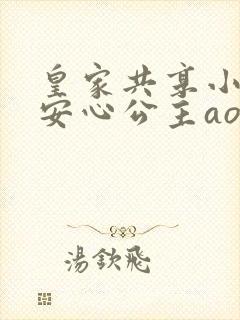 皇家共享小
安心公主ao
湯欽飛